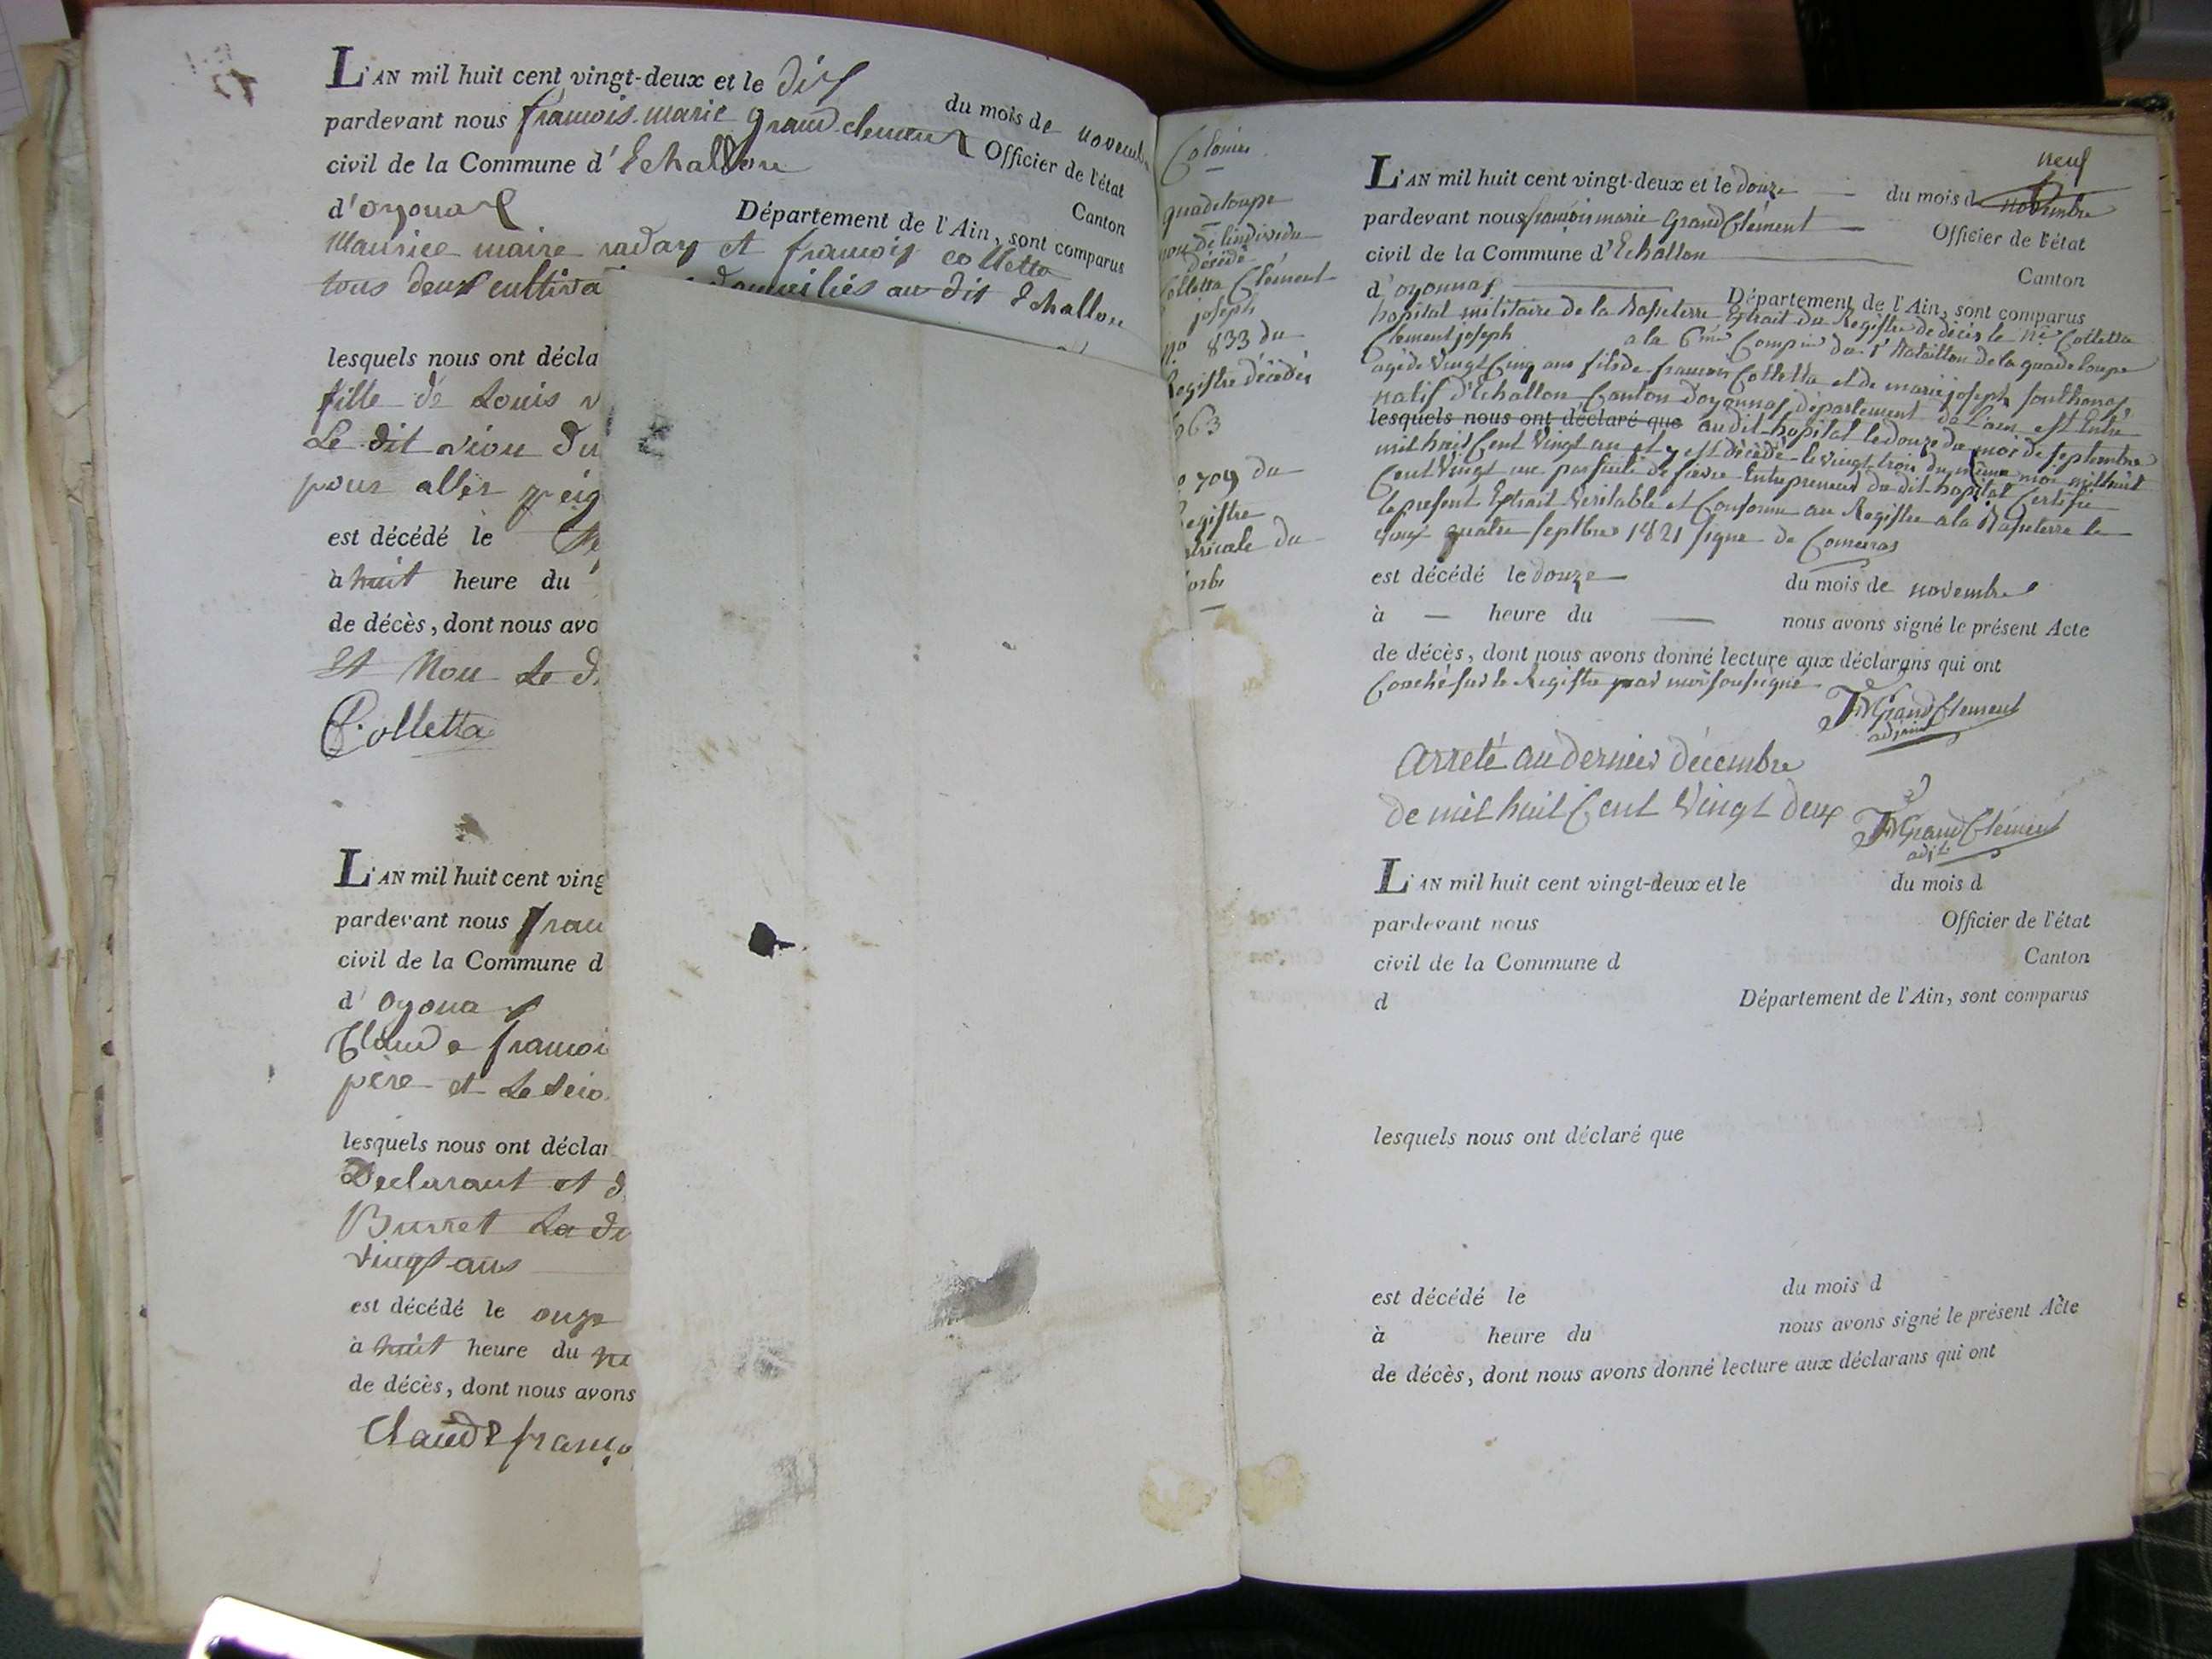 L'AN mil huit cent vingt-deux et le dix du mois de novembre
pardevant nous francois marie grand clement Officier de l'état
civil de la Commune d'Echallon Canton
d'oyonax Département de l'Ain, sont comparus
Maurice maire et francois colletta
tous deux cultiva domiciliés au dit Echallon
lesquels nous ont décla
fille de Louis
Le dit du
pour aller
est décédé le
à huit heure du
de décès, dont nous avo
Et Non Le d
Colletta
L'AN mil huit cent ving
pardevant nous fran
civil de la Commune d
d'oyona
Claude francoi
père et Le
lesquels nous ont déclar
Declarant et d
Burret La
vingt ans
est décédé le onze
à huit heure du
de décès, dont nous avons
Claude franço
Colonies
guadeloupe
de lindividu
décédé
Colletta Clément
joseph
No 833 du
Registre décédés
663
709 du
Registre
du
L'AN mil huit cent vingt-deux et le douze du mois d novembre neuf
pardevant nous francois marie Grand Clément Officier de l'état
civil de la Commune d'Echallon Canton
d'oyonnax Département de l'Ain, sont comparus
hopital militaire de la Basseterre Extrait du Registre de décès le né Colletta
Clement joseph a la 6me Compie du 1r Bataillon de la guadeloupe
agé de Vingt Cinq ans fils de francois Colletta et de marie joseph
natif d'Echallon Canton d'oyonnax département de Lain est Entré
lesquels nous ont déclaré que audit hopital le douze du mois de septembre
mil huit Cent Vingt un et y est décédé le vingt trois du même mois mil huit
Cent Vingt un par suite de fievre Entrepreneur du dit hopital Certifie
le present Extrait Veritable et Conforme au Registre a la Basseterre le
vingt quatre septbre 1821 signé de
est décédé le douze du mois de novembre
à — heure du — nous avons signé le présent Acte
de décès, dont nous avons donné lecture aux déclarans qui ont
Couché sur le Registre par moi soussigné
FM Grand Clement
adjoint
Arreté au dernier décembre
de mil huit Cent Vingt deux
FM Grand Clément
adjt
L'AN mil huit cent vingt-deux et le du mois d
pardevant nous Officier de l'état
civil de la Commune d Canton
d Département de l'Ain, sont comparus
lesquels nous ont déclaré que
est décédé le du mois d
à heure du nous avons signé le présent Acte
de décès, dont nous avons donné lecture aux déclarans qui ont